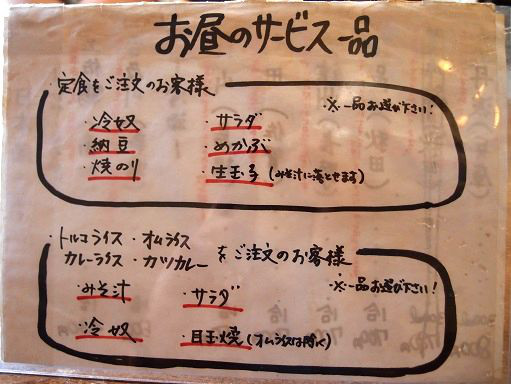 お昼のサービス一品
・定食をご注文のお客様
※一品お選び下さい!
・冷奴 ・サラダ
・納豆 ・めかぶ
・焼のり ・生玉子(みそ汁に落とせます)
・トルコライス ・オムライス
カレーライス ・カツカレー をご注文のお客様
※一品お選び下さい!
・みそ汁 ・サラダ
・冷奴 ・目玉焼(オムライスは除く)